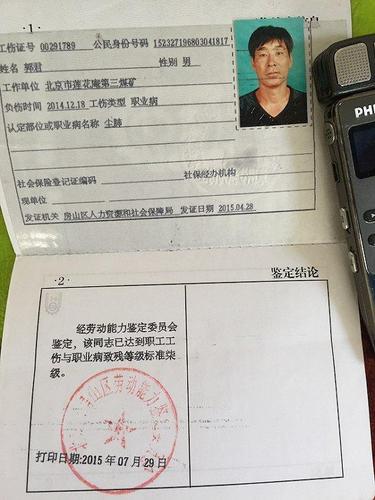 ·1·
工伤证号 00291789 公民身份号码 152327196803041817
姓名 郭君 性别 男
工作单位 北京市莲花庵第三煤矿
负伤时间 2014.12.18 工伤类型 职业病
认定部位或职业病名称 尘肺
社会保险登记证编码 社保经办机构
现单位
发证机关 房山区人力资源和社会保障局 发证日期 2015.04.28
·2·
鉴定结论
经劳动能力鉴定委员会
鉴定，该同志已达到职工工
伤与职业病致残等级标准柒
级。
房山区劳动能力鉴
打印日期:2015 年 07 月 29 日
PHI